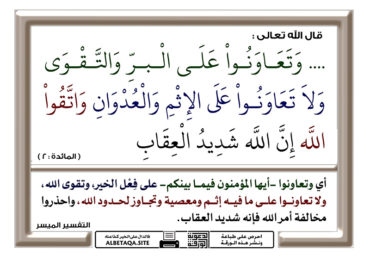 قال الله تعالى :
.... وَتَعَاوَنُواْ عَلَى الْبِرِّ وَالتَّقْوَى
وَلاَ تَعَاوَنُواْ عَلَى الإِثْمِ وَالْعُدْوَانِ وَاتَّقُواْ
اللَّه إِنَّ اللَّه شَدِيدُ الْعِقَابِ
( المائدة : ٢ )
أي وتعاونوا -أيها المؤمنون فيما بينكم- على فِعْل الخير، وتقوى الله ،
ولا تعاونوا على ما فيه إثم ومعصية وتجاوز لحدود الله ، واحذروا
مخالفة أمر الله فإنه شديد العقاب.
التفسير الميسر
احرص على طباعة
ونشر هذه الورقة
فالدال على الخير كفاعله
ALBETAQA.SITE